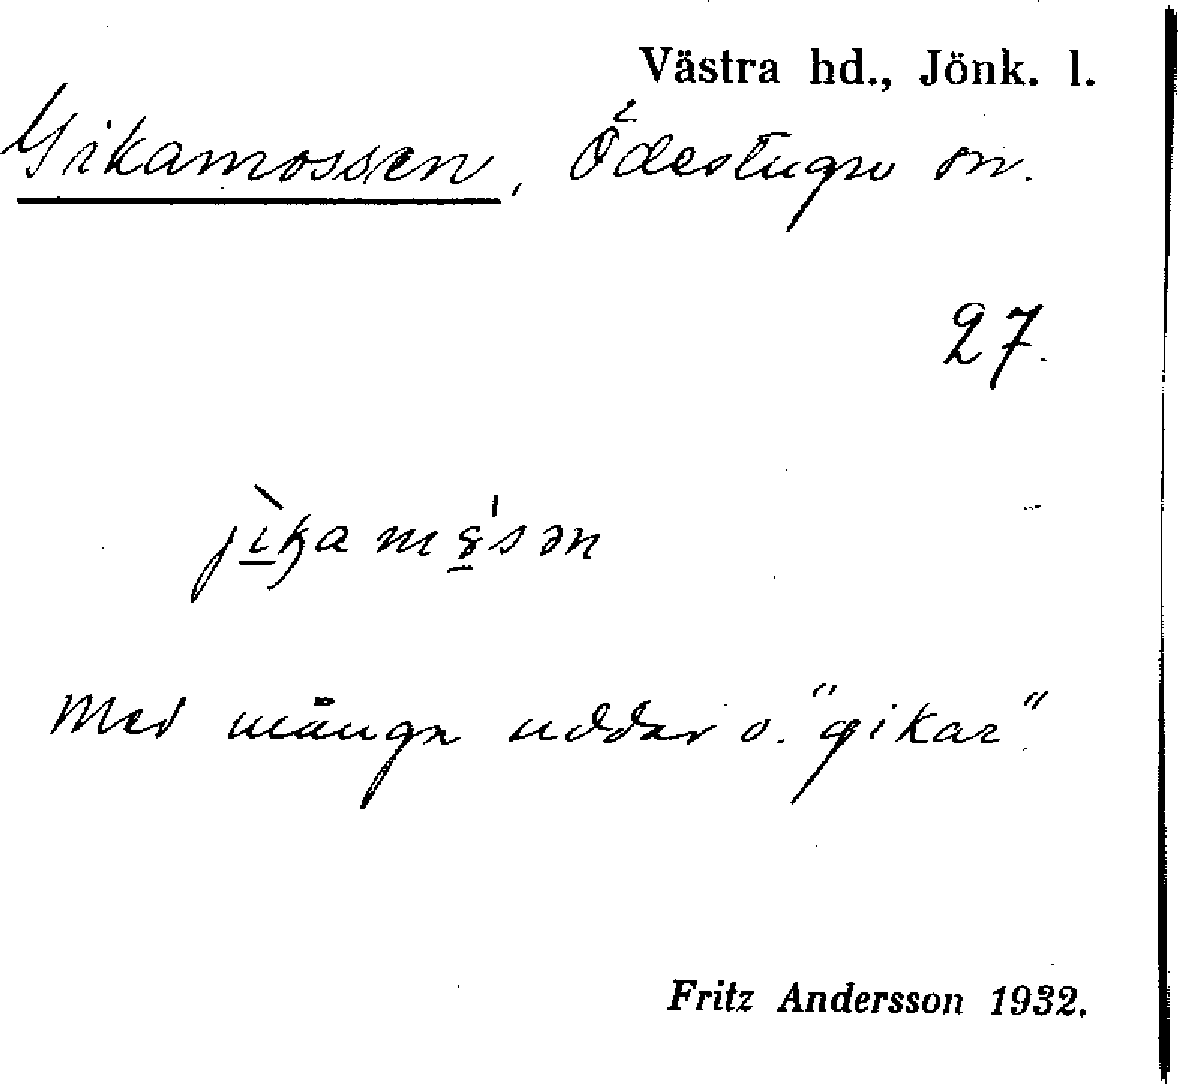 Västra hd., Jönk. l.
Gikamossen, Ödestugu sn.
27.
jìka mȣ'sən
Med många uddar o. "gikar".
Fritz Andersson 1932.